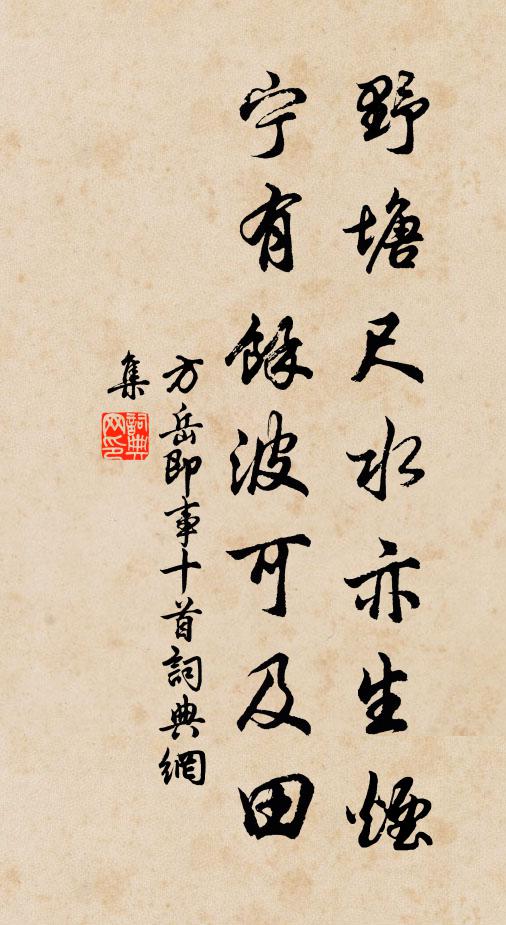 野塘尺水亦生煙
宁有餘波可及田
方岳即事十首詞典網
集
詞典
网印